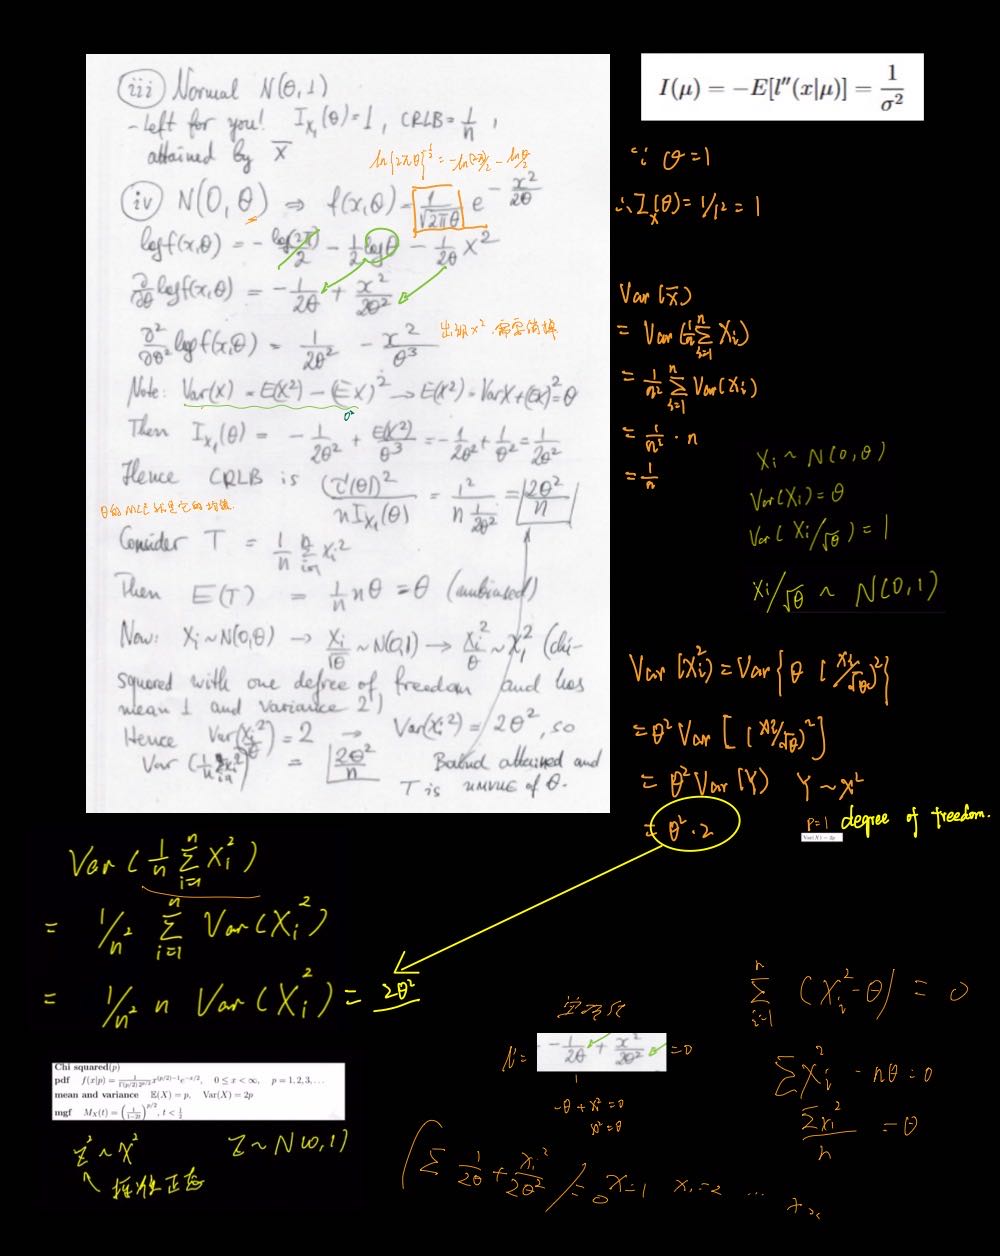 iii Normal N(θ,1)
- Left for you! I_X₁(θ)=1, CRLB=1/n,
attained by X̄
ln(2πθ)^(-1/2) = -ln(2π)/2 - lnθ/2
iv N(0,θ) ⇒ f(x,θ) = 1/√(2πθ) e^(-x²/2θ)
log f(x,θ) = -log(2π)/2 - 1/2 logθ - 1/2θ x²
∂/∂θ log f(x,θ) = -1/2θ + x²/2θ²
∂²/∂θ² log f(x,θ) = 1/2θ² - x²/θ³
出现x²,需要消掉
Note: Var(X) = E(X²) - (EX)² → E(X²) = Var X + (EX)² = θ
Then I_X₁(θ) = -1/2θ² + E(X²)/θ³ = -1/2θ² + 1/θ² = 1/2θ²
Hence CRLB is (τ'(θ))²/(n I_X₁(θ)) = 1²/(n 1/2θ²) = 2θ²/n
θ的MLE就是它的均值.
Consider T = 1/n Σ_{i=1}^{n} Xi²
Then E(T) = 1/n nθ = θ (unbiased)
Now: Xi ~ N(0,θ) → Xi/√θ ~ N(0,1) → Xi²/θ ~ χ₁² (chi-
squared with one degree of freedom and has
mean 1 and variance 2)
Hence Var(Xi²/θ) = 2 → Var(Xi²) = 2θ², so
Var(1/n Σ_{i=1}^{n} Xi²) = 2θ²/n Bound attained and
T is UMVUE of θ.
I(μ) = -E[l''(x|μ)] = 1/σ²
∵ σ=1
∴ I_X(θ) = 1/1² = 1
Var(x̄)
= Var(1/n Σ_{i=1}^{n} Xi)
= 1/n² Σ_{i=1}^{n} Var(Xi)
= 1/n² · n
= 1/n
Xi ~ N(0,θ)
Var(Xi) = θ
Var(Xi/√θ) = 1
Xi/√θ ~ N(0,1)
Var(Xi²) = Var{θ(Xi/√θ)²}
= θ² Var[(Xi/√θ)²]
= θ² Var(Y) Y ~ χ²
p=1 degree of freedom.
= θ²·2
Var(X) = 2p
Var(1/n Σ_{i=1}^{n} Xi²)
= 1/n² Σ_{i=1}^{n} Var(Xi²)
= 1/n² n Var(Xi²) = 2θ²
Chi squared(p)
pdf f(x|p) = 1/(Γ(p/2)2^(p/2)) x^((p/2)-1) e^(-x/2), 0 ≤ x < ∞, p = 1, 2, 3, ...
mean and variance E(X) = p, Var(X) = 2p
mgf M_X(t) = (1/(1-2t))^(p/2), t < 1/2
Z² ~ χ² Z ~ N(0,1)
标准正态
l' = -1/2θ + x²/2θ² = 0
-θ + x² = 0
x² = θ
Σ_{i=1}^{n} (Xi² - θ) = 0
ΣXi² - nθ = 0
ΣXi²/n = θ
(Σ 1/2θ + Xi²/2θ²) = 0